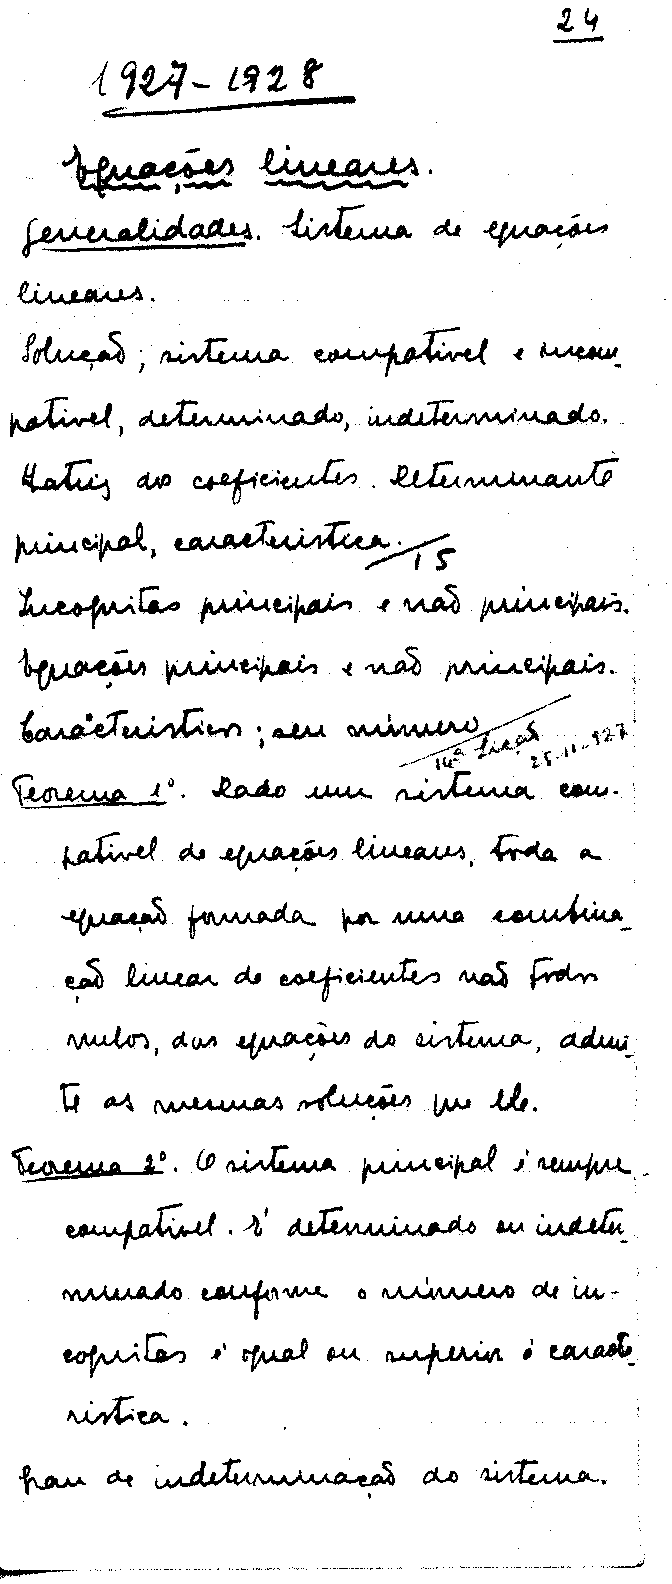 24
1927-1928
Equações lineares.
Generalidades. Sistema de equações
lineares.
Solução; sistema compativel e incom-
pativel, determinado, indeterminado.
Matriz dos coeficientes. Determinante
principal, caracteristica.
15
Incognitas principais e não principais.
Equações principais e não principais.
Caracteristicos; seu número
14ª Lição 25-11-927
Teorema 1º. Dado um sistema com-
pativel de equações lineares, toda a
equação formada por uma combina-
ção linear de coeficientes não todos
nulos, das equações do sistema, admi-
te as mesmas soluções que ele.
Teorema 2º. O sistema principal é sempre
compativel. É determinado ou indeter-
minado conforme o número de in-
cognitas é igual ou superior á caracte-
ristica.
Grau de indeterminação do sistema.